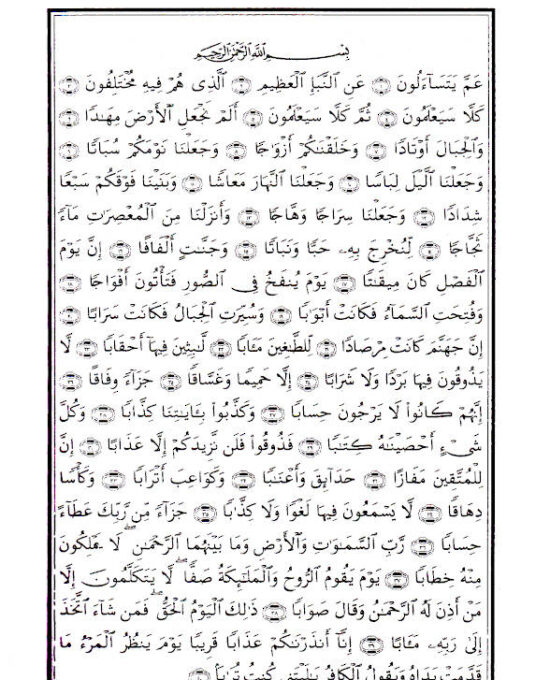 بِسْمِ ٱللَّهِ ٱلرَّحْمَٰنِ ٱلرَّحِيمِ
عَمَّ يَتَسَآءَلُونَ ١ عَنِ ٱلنَّبَإِ ٱلْعَظِيمِ ٢ ٱلَّذِى هُمْ فِيهِ مُخْتَلِفُونَ ٣
كَلَّا سَيَعْلَمُونَ ٤ ثُمَّ كَلَّا سَيَعْلَمُونَ ٥ أَلَمْ نَجْعَلِ ٱلْأَرْضَ مِهَٰدًا ٦
وَٱلْجِبَالَ أَوْتَادًا ٧ وَخَلَقْنَٰكُمْ أَزْوَٰجًا ٨ وَجَعَلْنَا نَوْمَكُمْ سُبَاتًا ٩
وَجَعَلْنَا ٱلَّيْلَ لِبَاسًا ١٠ وَجَعَلْنَا ٱلنَّهَارَ مَعَاشًا ١١ وَبَنَيْنَا فَوْقَكُمْ سَبْعًا
شِدَادًا ١٢ وَجَعَلْنَا سِرَاجًا وَهَّاجًا ١٣ وَأَنزَلْنَا مِنَ ٱلْمُعْصِرَٰتِ مَآءً
ثَجَّاجًا ١٤ لِّنُخْرِجَ بِهِۦ حَبًّا وَنَبَاتًا ١٥ وَجَنَّٰتٍ أَلْفَافًا ١٦ إِنَّ يَوْمَ
ٱلْفَصْلِ كَانَ مِيقَٰتًا ١٧ يَوْمَ يُنفَخُ فِى ٱلصُّورِ فَتَأْتُونَ أَفْوَاجًا ١٨
وَفُتِحَتِ ٱلسَّمَآءُ فَكَانَتْ أَبْوَٰبًا ١٩ وَسُيِّرَتِ ٱلْجِبَالُ فَكَانَتْ سَرَابًا ٢٠
إِنَّ جَهَنَّمَ كَانَتْ مِرْصَادًا ٢١ لِّلطَّٰغِينَ مَـَٔابًا ٢٢ لَّٰبِثِينَ فِيهَآ أَحْقَابًا ٢٣ لَّا
يَذُوقُونَ فِيهَا بَرْدًا وَلَا شَرَابًا ٢٤ إِلَّا حَمِيمًا وَغَسَّاقًا ٢٥ جَزَآءً وِفَاقًا ٢٦
إِنَّهُمْ كَانُوا۟ لَا يَرْجُونَ حِسَابًا ٢٧ وَكَذَّبُوا۟ بِـَٔايَٰتِنَا كِذَّابًا ٢٨ وَكُلَّ
شَىْءٍ أَحْصَيْنَٰهُ كِتَٰبًا ٢٩ فَذُوقُوا۟ فَلَن نَّزِيدَكُمْ إِلَّا عَذَابًا ٣٠ إِنَّ
لِلْمُتَّقِينَ مَفَازًا ٣١ حَدَآئِقَ وَأَعْنَٰبًا ٣٢ وَكَوَاعِبَ أَتْرَابًا ٣٣ وَكَأْسًا
دِهَاقًا ٣٤ لَّا يَسْمَعُونَ فِيهَا لَغْوًا وَلَا كِذَّٰبًا ٣٥ جَزَآءً مِّن رَّبِّكَ عَطَآءً
حِسَابًا ٣٦ رَّبِّ ٱلسَّمَٰوَٰتِ وَٱلْأَرْضِ وَمَا بَيْنَهُمَا ٱلرَّحْمَٰنِ ۖ لَا يَمْلِكُونَ
مِنْهُ خِطَابًا ٣٧ يَوْمَ يَقُومُ ٱلرُّوحُ وَٱلْمَلَٰٓئِكَةُ صَفًّا ۖ لَّا يَتَكَلَّمُونَ إِلَّا
مَنْ أَذِنَ لَهُ ٱلرَّحْمَٰنُ وَقَالَ صَوَابًا ٣٨ ذَٰلِكَ ٱلْيَوْمُ ٱلْحَقُّ ۖ فَمَن شَآءَ ٱتَّخَذَ
إِلَىٰ رَبِّهِۦ مَـَٔابًا ٣٩ إِنَّآ أَنذَرْنَٰكُمْ عَذَابًا قَرِيبًا يَوْمَ يَنظُرُ ٱلْمَرْءُ مَا
قَدَّمَتْ يَدَاهُ وَيَقُولُ ٱلْكَافِرُ يَٰلَيْتَنِى كُنتُ تُرَٰبًۢا ٤٠